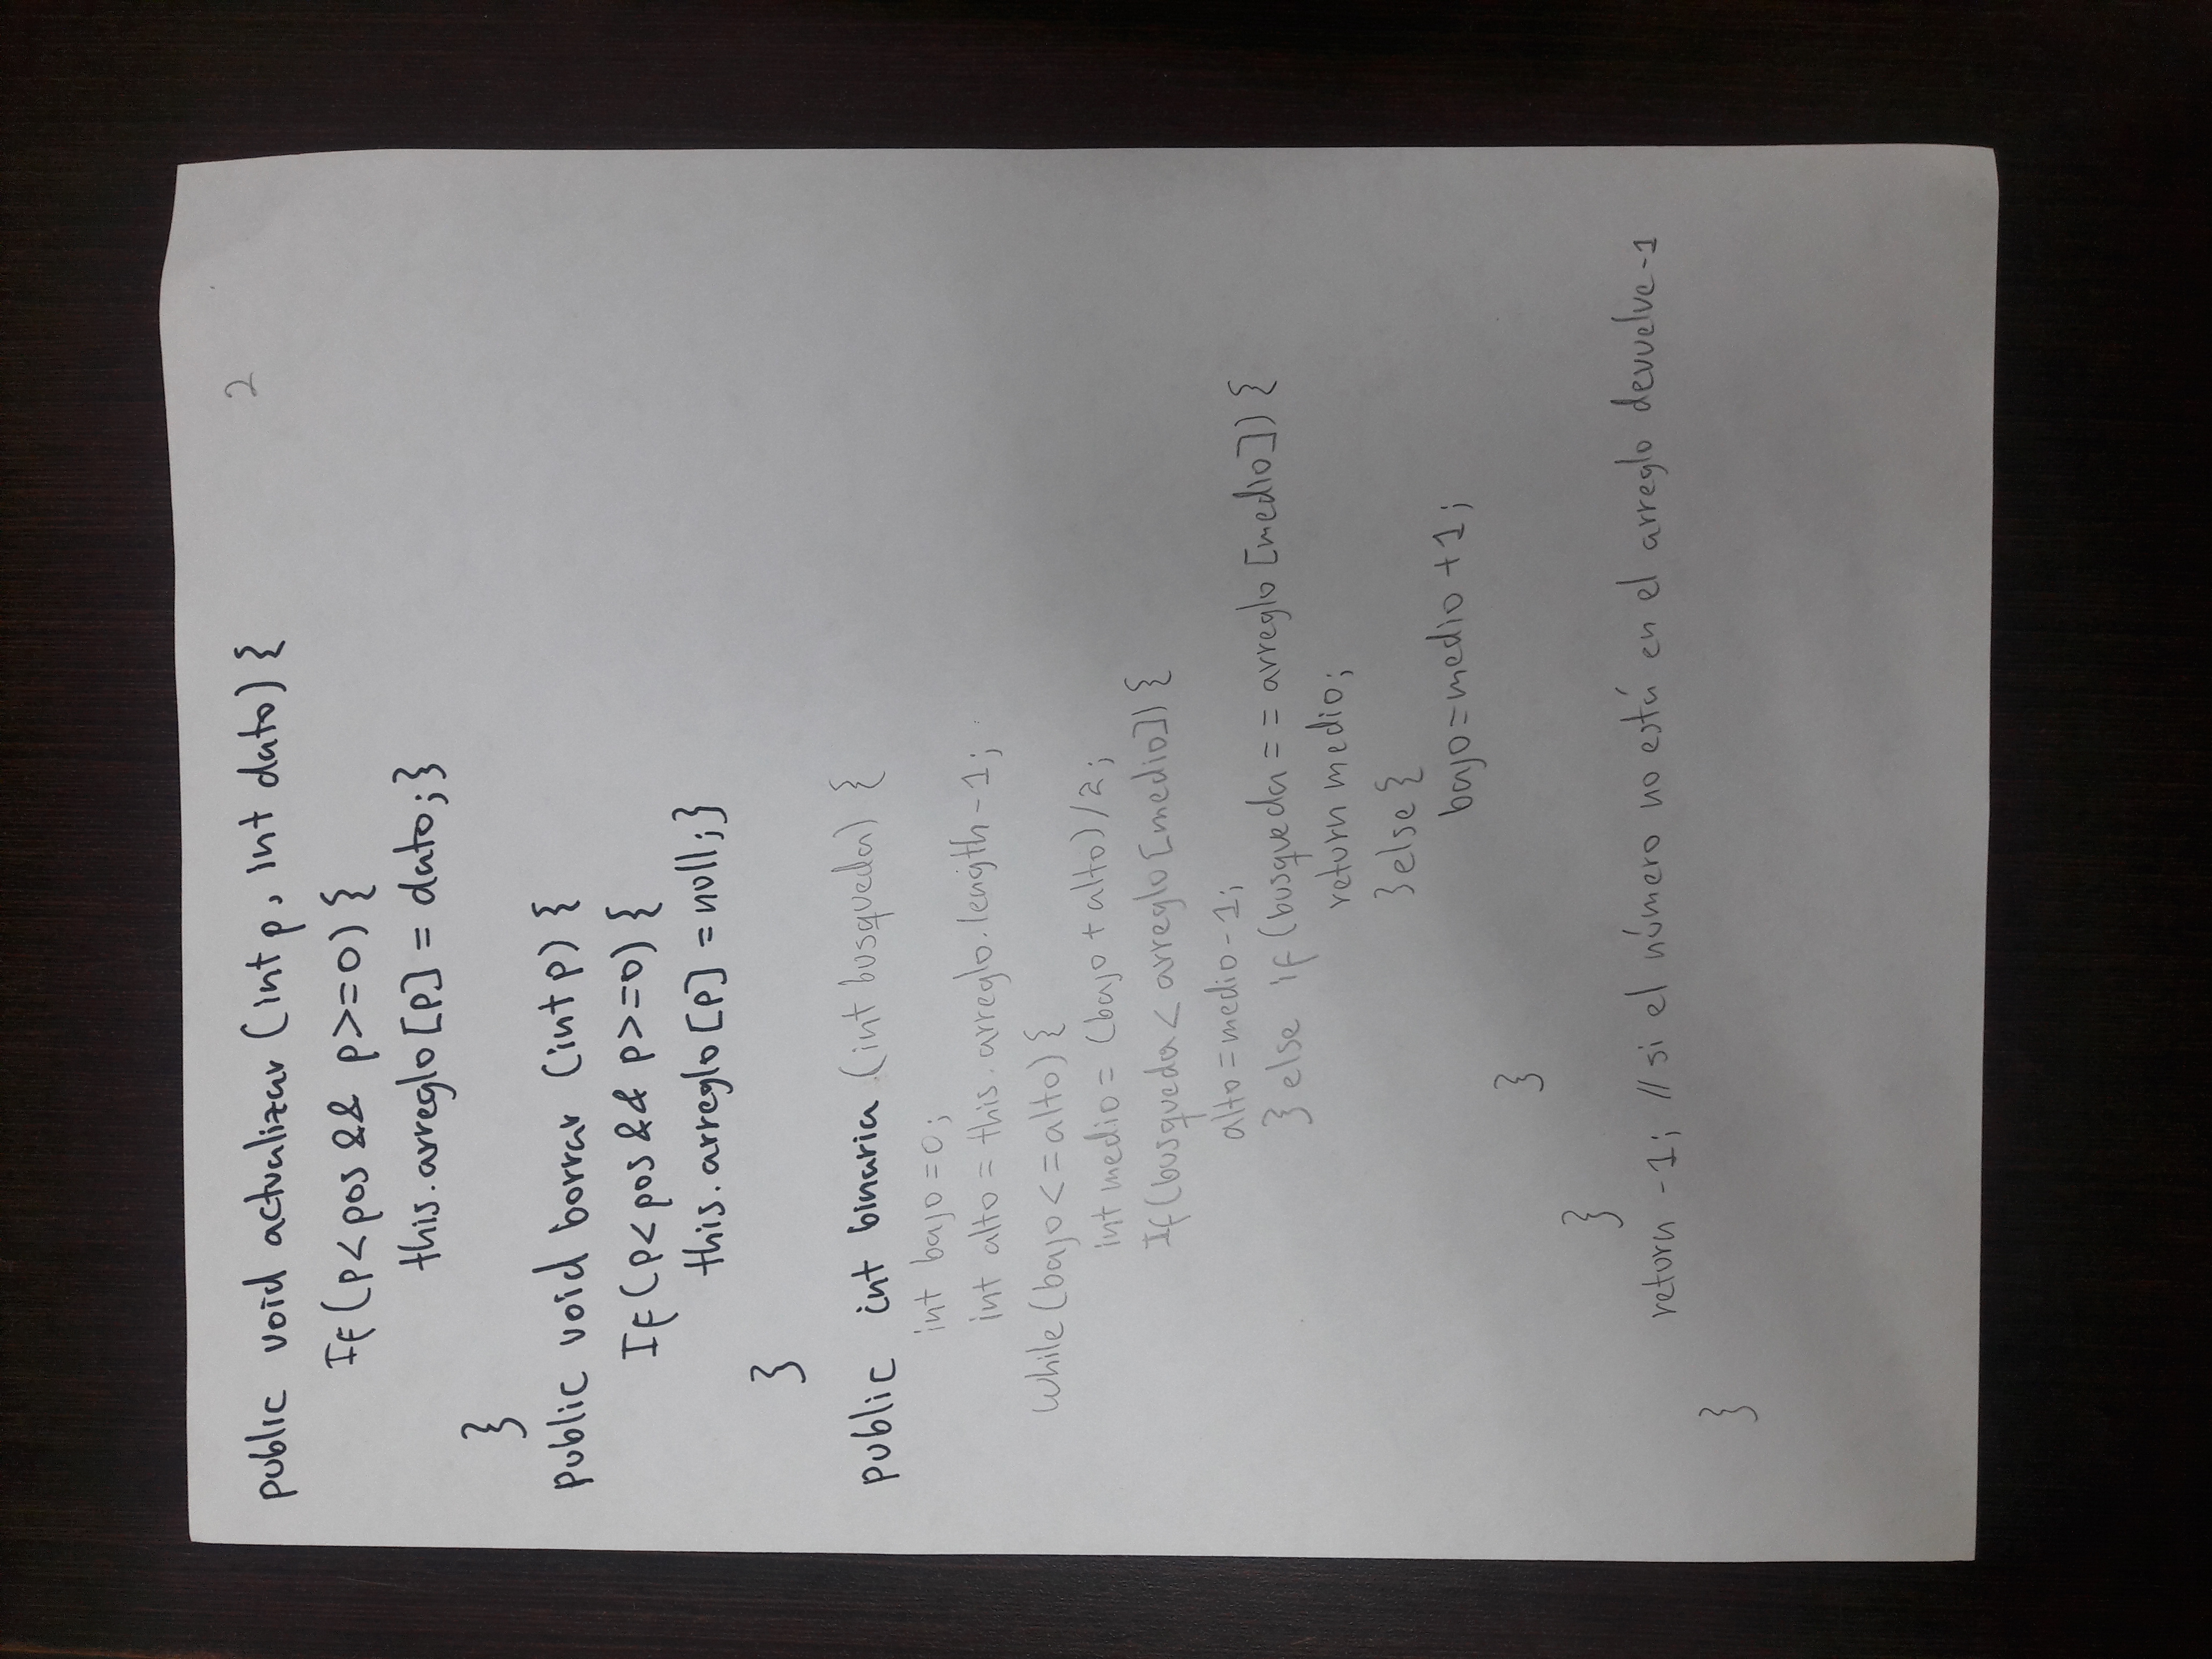 2
public void actualizar (int p, int dato) {
If (p<pos && p>=0) {
this.arreglo [p] = dato; }
}
public void borrar (int p) {
If (p<pos && p>=0) {
this.arreglo [p] = null; }
}
public int binaria (int busqueda) {
int bajo = 0;
int alto = this.arreglo.length - 1;
While (bajo <= alto) {
int medio = (bajo + alto) / 2;
If (busqueda < arreglo [medio]) {
alto = medio - 1;
} else if (busqueda == arreglo [medio]) {
return medio;
} else {
bajo = medio + 1;
}
}
return -1; // si el número no está en el arreglo devuelve -1
}